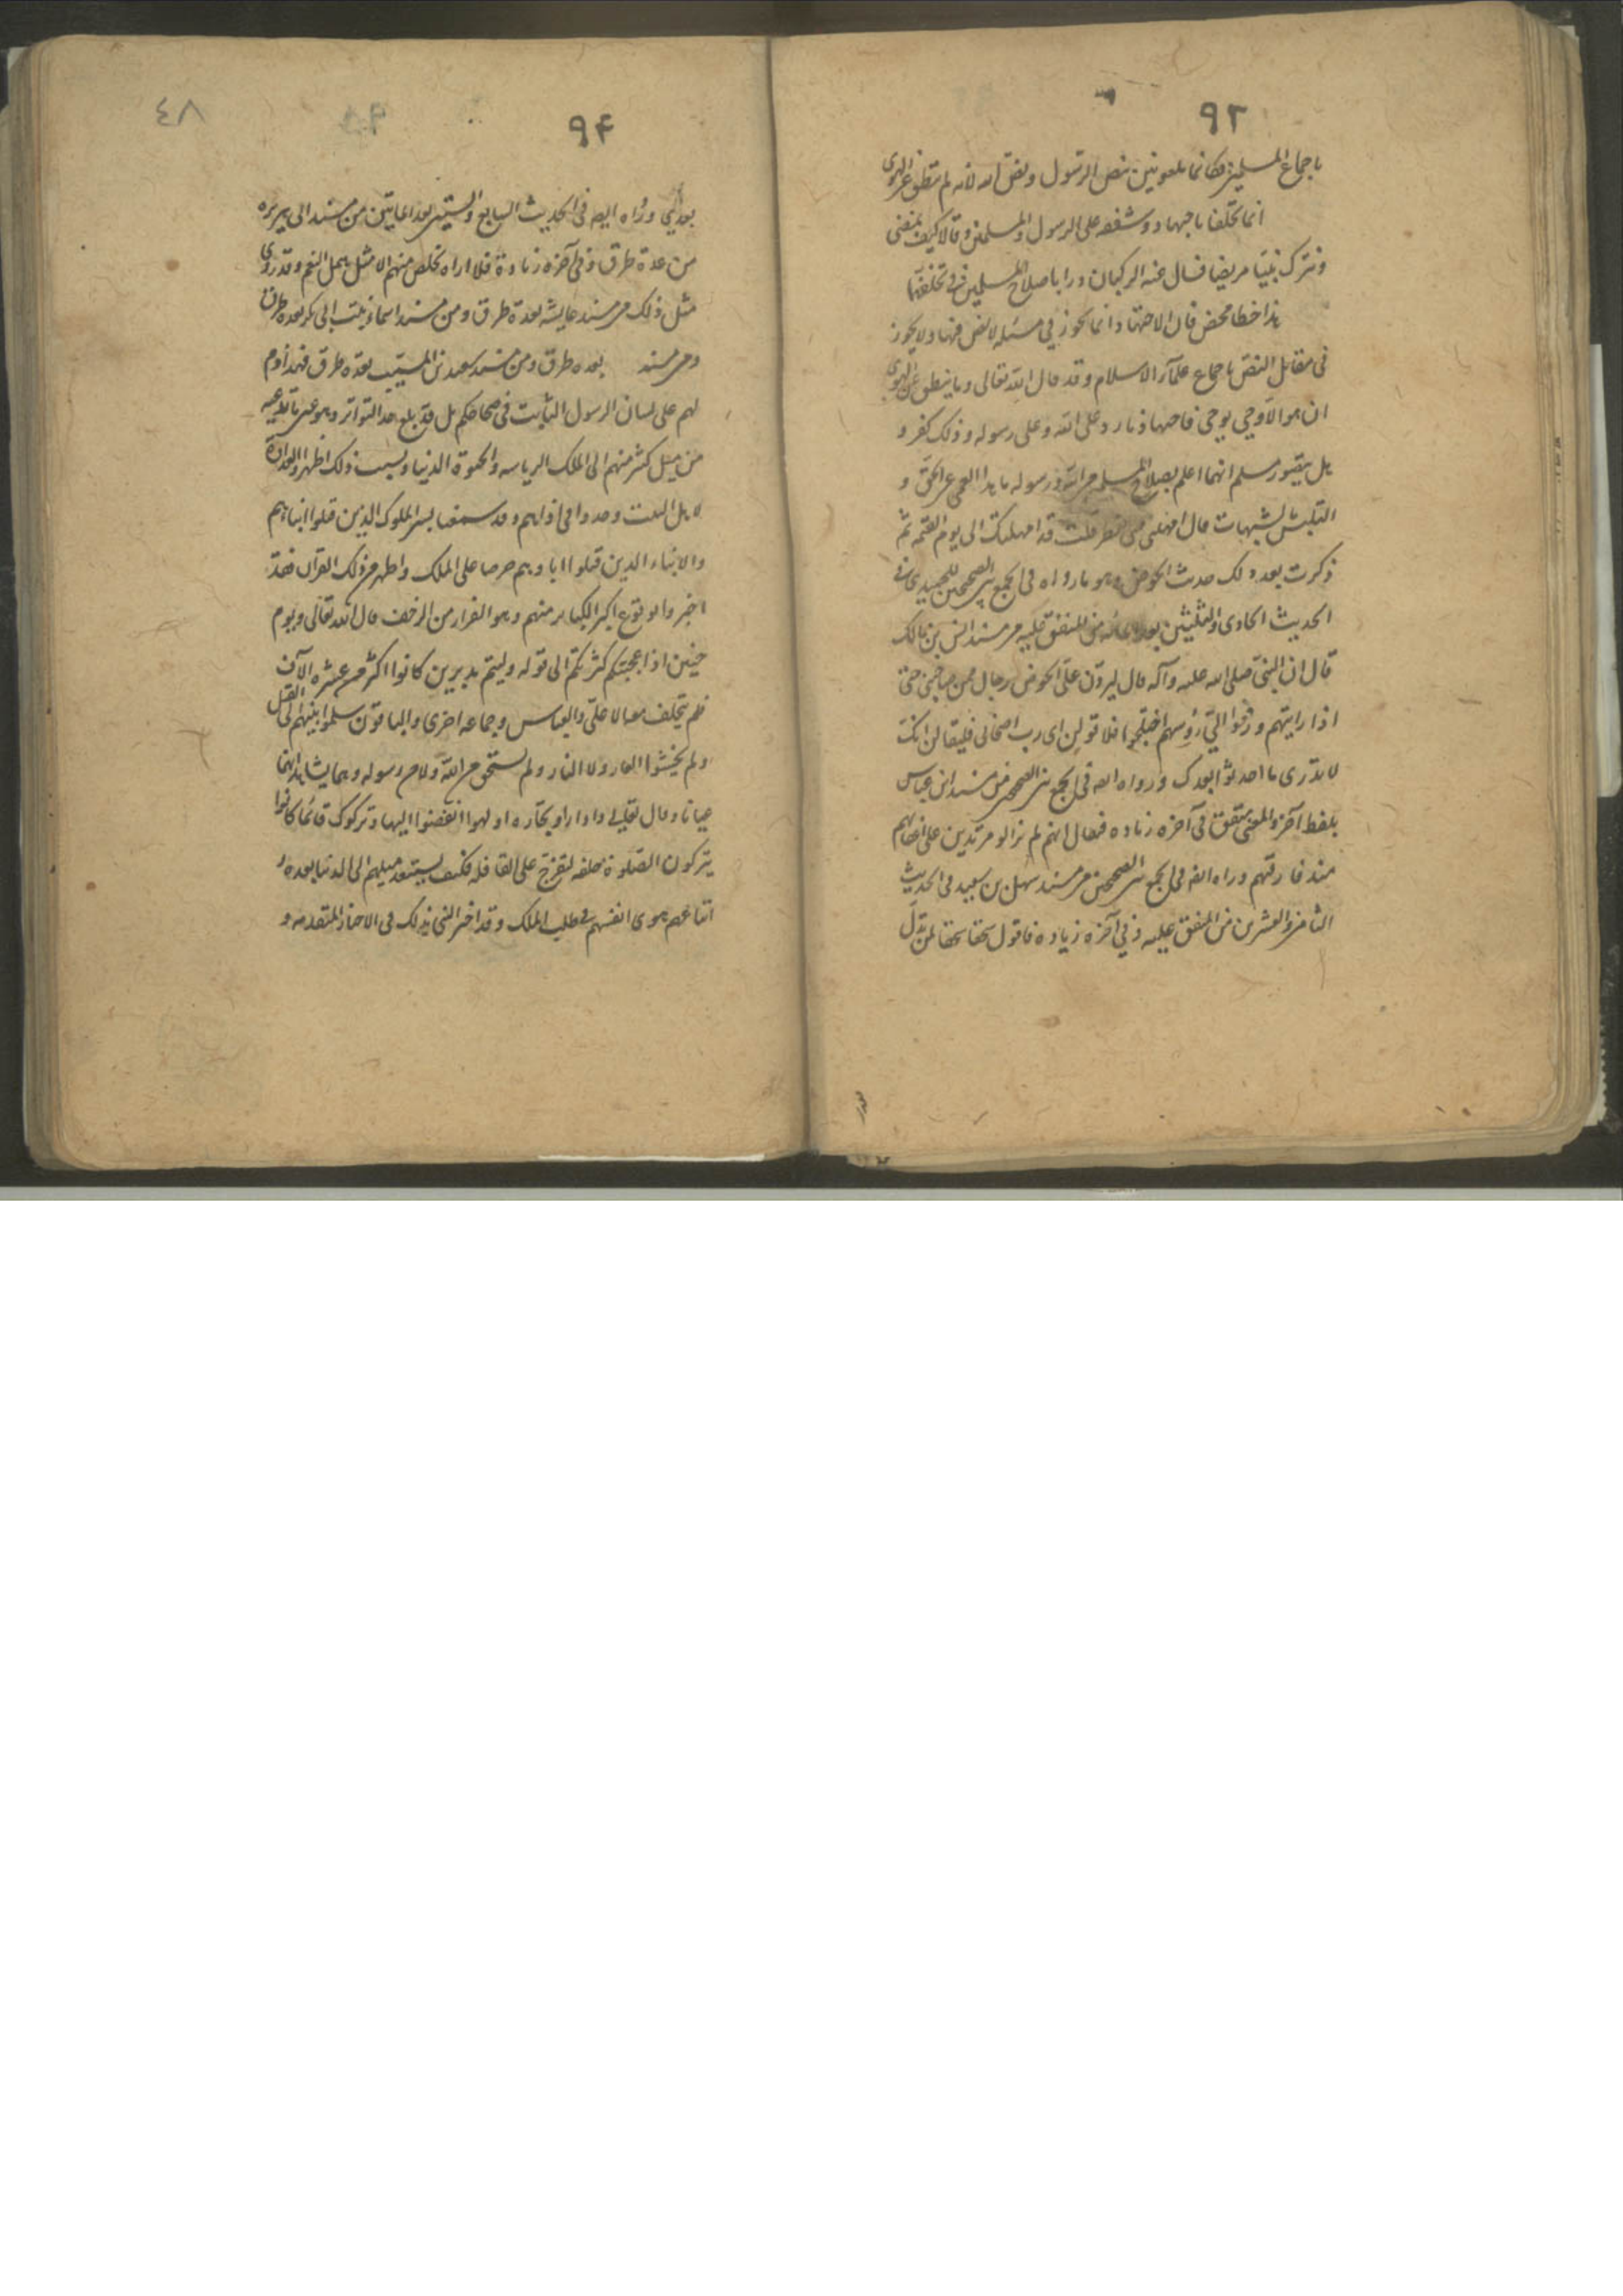 ٩٣
باجماع المسلمين فكانا ملعونين بنص الرسول ونص الله لأنه لم ينطق عن الهوى
انما تخلفا باجتهاد وشفقه على الرسول والمسلمين وقالا كيف نمضى
ونترك نبينا مريضا نسال عنه الركبان ورايا صلاح المسلمين فى تخلفهما
هذا خطا محض فان الاجتهاد انما يجوز في مسئله لا نص فيها ولا يجوز
فى مقابل النص باجماع علمآء الاسلام وقد قال الله تعالى وما ينطق عن الهوى
ان هو الا وحي يوحى فاجتهادنا رد على الله وعلى رسوله وذلك كفر و
هل يتصور مسلم انهما اعلم بصلاح المسلمين من الله ورسوله ما هذا العمى عن الحق و
التلبس بشبهات قال امهلنى حتى انظر قلت قد امهلتك الى يوم القيمه ثم
ذكرت بعد ذلك حديث الحوض وهو ما رواه فى الجمع بين الصحيحين للحميدى فى
الحديث الحادى والثلثين بعد المائه من المتفق عليه من مسند انس بن مالك
قال ان النبى صلى الله عليه وآله قال ليردن على الحوض رجال ممن صاحبنى حتى
اذا رايتهم ورفعوا الي رؤسهم اختلجوا فلاقولن اى رب اصحابى فليقالن انك
لا تدرى ما احدثوا بعدك ورواه ايضا فى الجمع بين الصحيحين من مسند ابن عباس
بلفظ آخر والمعنى متفق فى آخره زياده فيقال انهم لم يزالو مرتدين على اعقابهم
منذ فارقتهم ورواه ايضا فى الجمع بين الصحيحين من مسند سهل بن سعيد فى الحديث
الثامن والعشرين من المتفق عليه وفي آخره زياده فاقول سحقا سحقا لمن بدل
٩٤
٤٨
بعدي ورواه ايضا فى الحديث السابع والستين بعد الماتين من مسند ابى هريره
من عدة طرق وفى آخره زيادة فلا اراه يخلص منهم الا مثل همل النعم وقد روى
مثل ذلك من مسند عايشه بعدة طرق ومن مسند اسماء بنت ابى بكر بعده طرق
ومن مسند بعده طرق ومن مسند سعيد بن المسيب بعده طرق فهذا ذم
لهم على لسان الرسول الثابت فى صحاحكم بل قد بلغ حد التواتر وهو عين ما ندعيه
من ميل كثير منهم الى الملك الرياسه والحيوة الدنيا وبسبب ذلك اظهروا العداوة
لاهل البيت وجدوا فى اذاهم وقد سمعنا بسير الملوك الذين قتلوا ابناءهم
والابناء الذين قتلوا اباءهم حرصا على الملك واظهر من ذلك القرآن فقد
اخبر والوقوع اكبر الكباير منهم وهو الفرار من الزحف قال الله تعالى ويوم
حنين اذ اعجبتكم كثرتكم الى قوله وليتم مدبرين كانوا اكثر من عشره الآف
فلم يتخلف معه الا على والعباس وجماعه اخرى والباقون سلموا نبيهم الى القتل
ولم يخشوا العار ولا النار ولم يستحيوا من الله ولا من رسوله وهما يشاهدانهما
عيانا وقال تعالى واذا راوا تجآره او لهوا انفضوا اليها وتركوك قائما كانوا
يتركون الصلوة خلفه لتفرج على القافله فكيف يستبعد ميلهم الى الدنيا بعده و
اتباعهم هوى انفسهم فى طلب الملك وقد اخبر النبى بذلك فى الاخبار المتقدمه و